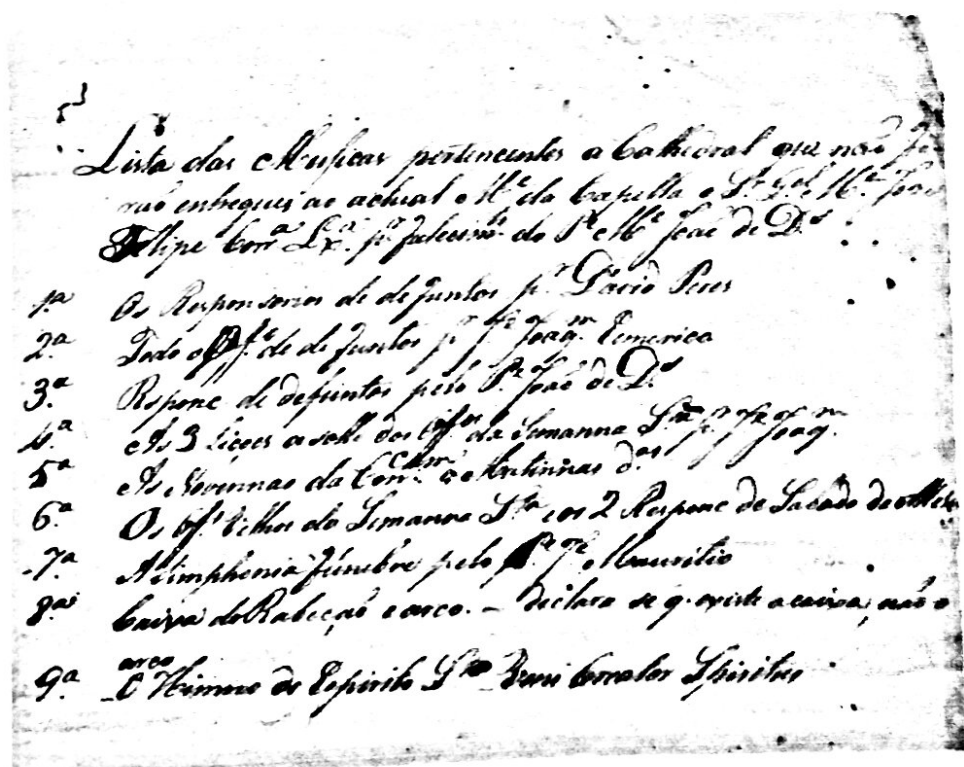 Lista das Musicas pertencentes a Cathedral que não fo
rão entregues ao actual Me. da Capella o Sr. Gel. Me. João
Felipe Corra. pr. falecimto. do Pe. Me. João de Ds.
1.a Os Responsorios de defuntos pr. David Peres
2.a Todo o Offo. de defuntos pr. Je. Joaqm. Emerico
3.a Respons de defuntos pelo Pe. João de Ds.
4.a As 3 Liçoes a solo dos Offos. da Semanna Sta. pr. Je. Joaqm.
5.a As Novennas da Conm. com e Matinnas dos
6.a Os Offos. Velhos da Semanna Sta. e os 2 Respons de Sabado de
7.a A simphonia funebre pelo Pe. Je. Mauritio
8.a Caixa do Rabecão e arco. – declara se q. existe a caixa, não o
arco
9.a O Himno do Espirito Sto. Veni Creator Spiritus